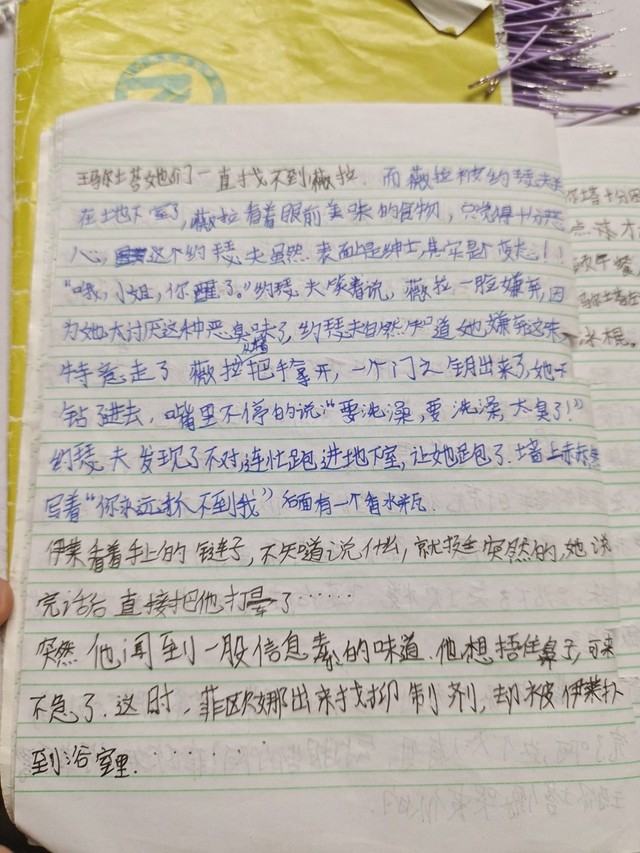 玛尔塔她们一直找不到薇拉. 而薇拉被约瑟夫关
在地下室了, 薇拉看着眼前美味的食物, 只觉得十分恶
心, 这个约瑟夫虽然表面上是绅士, 其实是个变态!!
"哦, 小姐, 你醒了。" 约瑟夫笑着说, 薇拉一脸嫌弃, 因
为她太讨厌这种恶臭味了, 约瑟夫自然知道她嫌弃这味
特意走了 薇拉把手拿开, 一个门之钥出来了, 她
钻了进去, 嘴里不停的说"要洗澡, 要洗澡, 太臭了!"
约瑟夫发现了不对, 连忙跑进地下室, 让她跑了. 墙上赤
写着"你永远抓不到我" 后面有一个香水瓶.
伊莱看着手上的链子, 不知道说什么, 就挺突然的, 她说
完话后直接把他打晕了······
突然他闻到一股信息素的味道. 他想捂住鼻子, 可来
不急了. 这时, 菲欧娜出来找抑制剂, 却被伊莱扑
到浴室里.········
你塔十分
点冰
顿早餐
玛尔塔
冰棍。